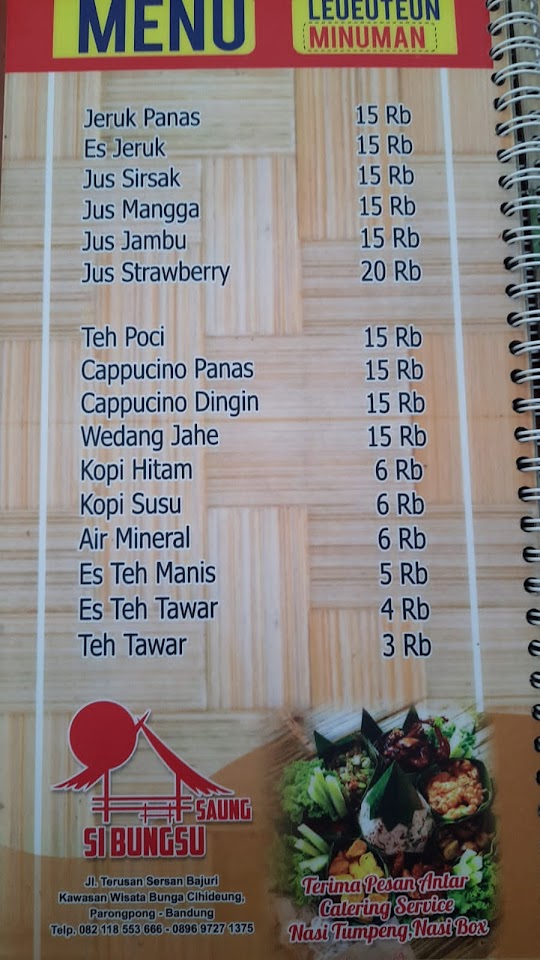 MENU
LEUEUTEUN
MINUMAN
Jeruk Panas 15 Rb
Es Jeruk 15 Rb
Jus Sirsak 15 Rb
Jus Mangga 15 Rb
Jus Jambu 15 Rb
Jus Strawberry 20 Rb
Teh Poci 15 Rb
Cappucino Panas 15 Rb
Cappucino Dingin 15 Rb
Wedang Jahe 15 Rb
Kopi Hitam 6 Rb
Kopi Susu 6 Rb
Air Mineral 6 Rb
Es Teh Manis 5 Rb
Es Teh Tawar 4 Rb
Teh Tawar 3 Rb
SAUNG
SI BUNGSU
Jl. Terusan Sersan Bajuri
Kawasan Wisata Bunga Cihideung,
Parongpong - Bandung
Telp. 082 118 553 666 - 0896 9727 1375
Terima Pesan Antar
Catering Service
Nasi Tumpeng,Nasi Box